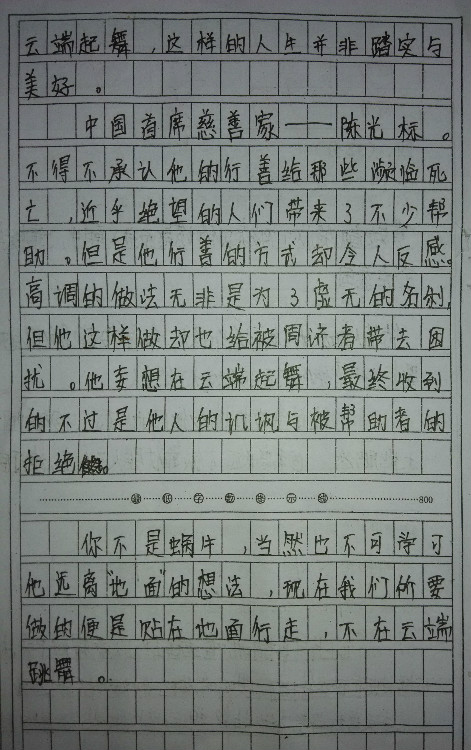 云端起舞，这样的人生并非踏实与
美好。
中国首席慈善家——陈光标。
不得不承认他的行善给那些濒临死
亡，近乎绝望的人们带来了不少帮
助。但是他行善的方式却令人反感。
高调的做法无非是为了虚无的名利，
但他这样做却也给被周济者带去困
扰。他妄想在云端起舞，最终收到
的不过是他人的讥讽与被帮助者的
拒绝。
800
你不是蜗牛，当然也不可学可
他远离“地面”的想法，现在我们所要
做的便是贴在地面行走，不在云端
跳舞。